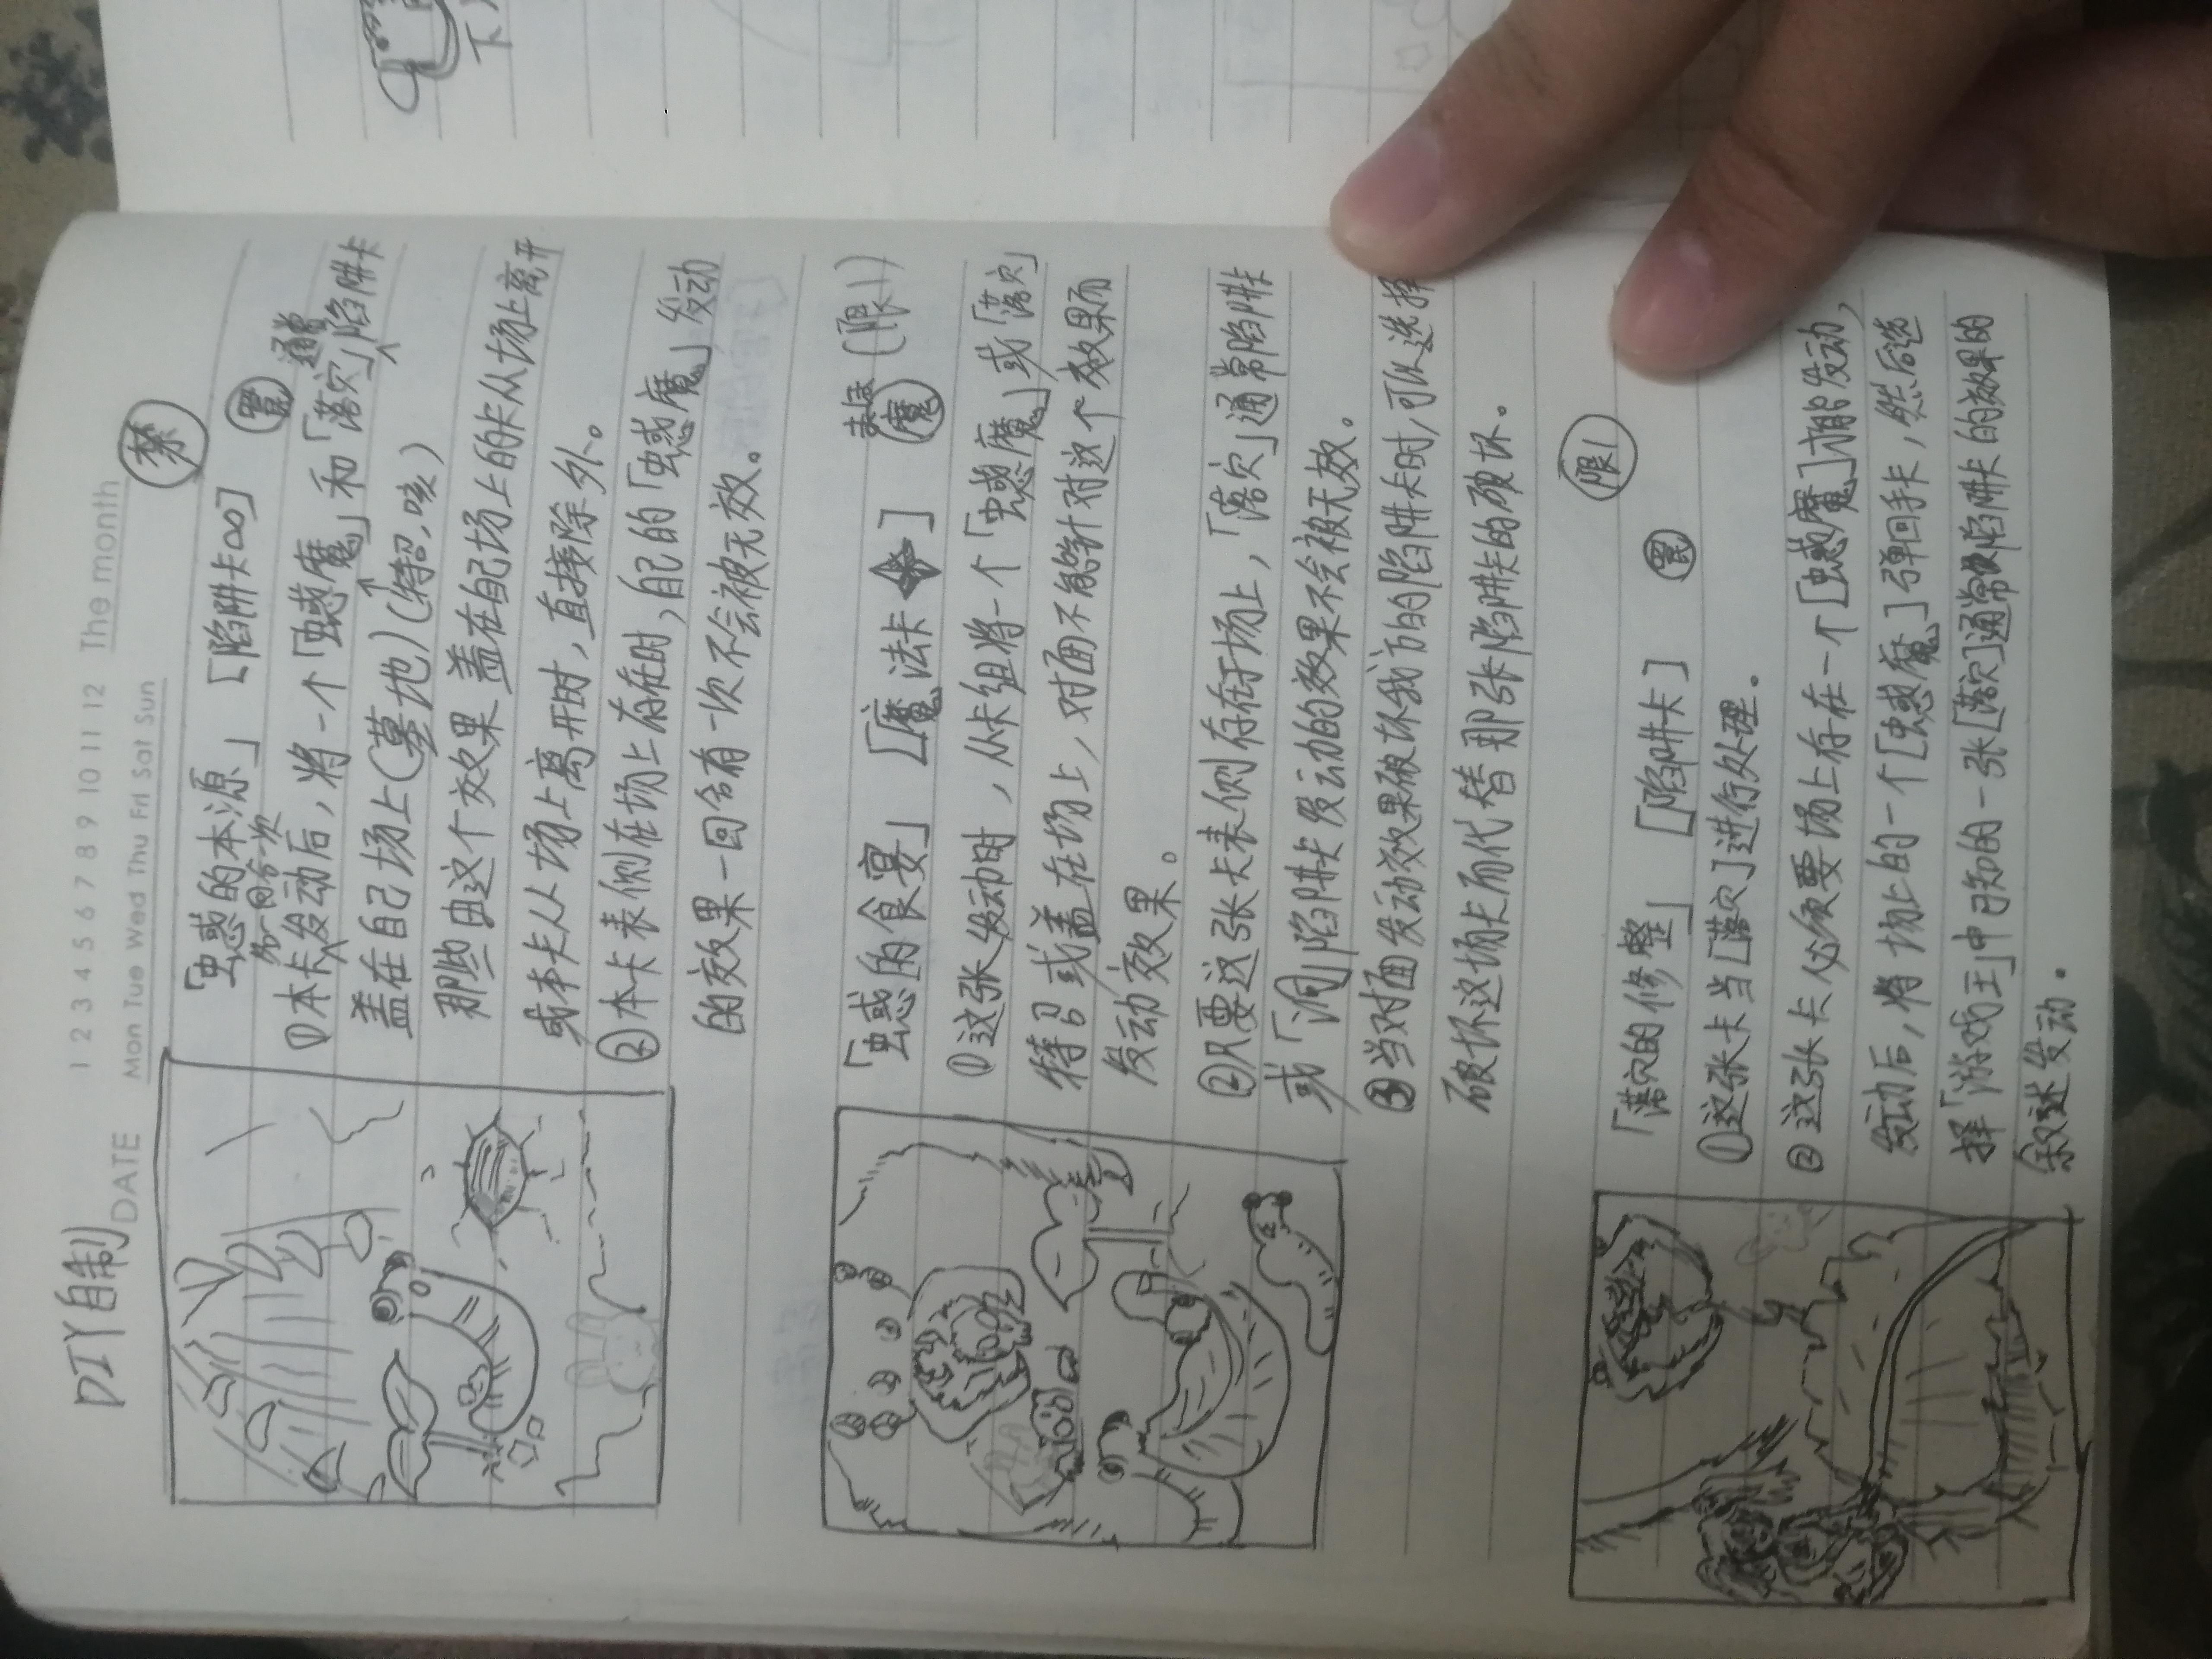 下
DIY自制
DATE
1 2 3 4 5 6 7 8 9 10 11 12 The month
Mon Tue Wed Thu Fri Sat Sun
禁
「虫惑的本源」 [陷阱卡∞] 罠
一回合一次 通常
①本卡发动后，将一个「虫惑魔」和「落穴」陷阱卡
盖在自己场上(墓地)(特召,咳)
那些由这个效果盖在自己场上的卡从场上离开
或本卡从场上离开时，直接除外。
②本卡表侧在场上存在时，自己的「虫惑魔」发动
的效果一回合有一次不会被无效。
「虫惑的食宴」 [魔法卡] 魔 (限1)
①这张发动时，从卡组将一个「虫惑魔」或「落穴」
特召或盖在场上，对面不能针对这个效果而
发动效果。
②只要这张卡表侧存在于场上，「落穴」通常陷阱
或「洞」陷阱卡发动的效果不会被无效。
③当对面发动效果破坏我方的陷阱卡时,可以选择
破坏这场卡而代替那张陷阱卡的破坏。
限1
「落穴的修整」 [陷阱卡] 罠
①这张卡当[落穴]进行处理。
②这张卡必须要场上存在一个[虫惑魔]才能发动，
发动后，将场上的一个[虫惑魔]弹回手卡，然后选
择「游戏王」中已知的一张[落穴]通常陷阱卡的效果的
叙述发动.